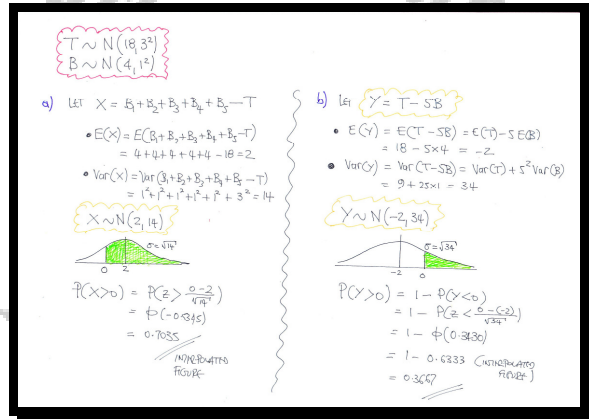 T ~ N(18,3²)
B ~ N(4,1²)
a) LET X = B₁+B₂+B₃+B₄+B₅—T
• E(X) = E(B₁+B₂+B₃+B₄+B₅-T)
= 4+4+4+4+4-18=2
• Var(X) = Var(B₁+B₂+B₃+B₄+B₅-T)
= 1²+1²+1²+1²+1²+3² = 14
X ~ N(2,14)
σ=√14
0 2
P(X>0) = P(Z > (0-2)/√14)
= ϕ(-0.5345)
= 0.7035
INTERPOLATED
FIGURE
b) LET Y = T - 5B
• E(Y) = E(T-5B) = E(T)-5E(B)
= 18 - 5×4 = -2
• Var(Y) = Var(T-5B) = Var(T) + 5²Var(B)
= 9 + 25×1 = 34
Y ~ N(-2,34)
σ=√34
-2 0
P(Y>0) = 1 - P(Y<0)
= 1 - P(Z < (0-(-2))/√34)
= 1 - ϕ(0.3430)
= 1 - 0.6333 (INTERPOLATED
FIGURE)
= 0.3667